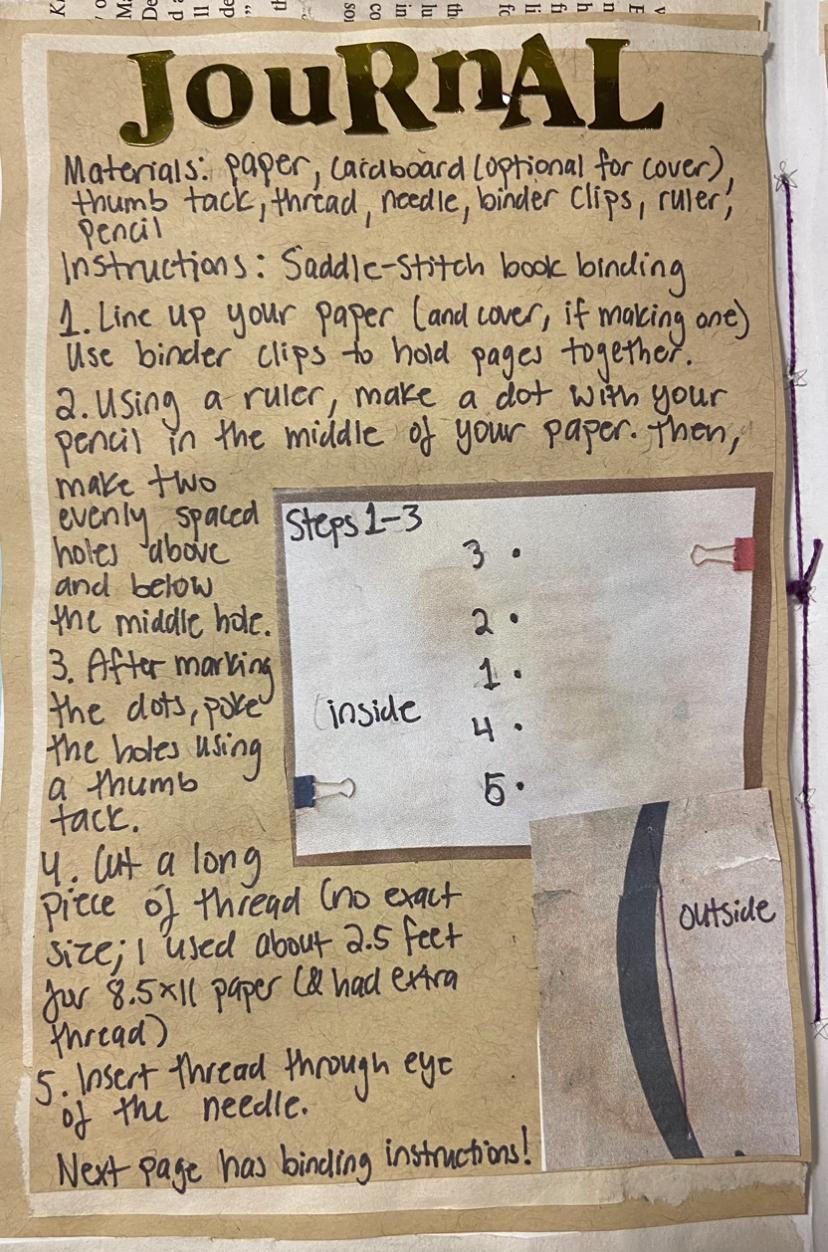 JouRnAL
Materials: paper, cardboard (optional for cover),
thumb tack, thread, needle, binder clips, ruler,
pencil
Instructions: Saddle-Stitch book binding
1. Line up your paper (and cover, if making one)
Use binder clips to hold pages together.
2. Using a ruler, make a dot with your
pencil in the middle of your paper. Then,
make two
evenly spaced
holes above
and below
the middle hole.
3. After marking
the dots, poke
the holes using
a thumb
tack.
4. Cut a long
piece of thread (no exact
size; I used about 2.5 feet
for 8.5x11 paper (& had extra
thread)
5. Insert thread through eye
of the needle.
Next page has binding instructions!
Steps 1-3
3
2
1
inside
4
5
outside